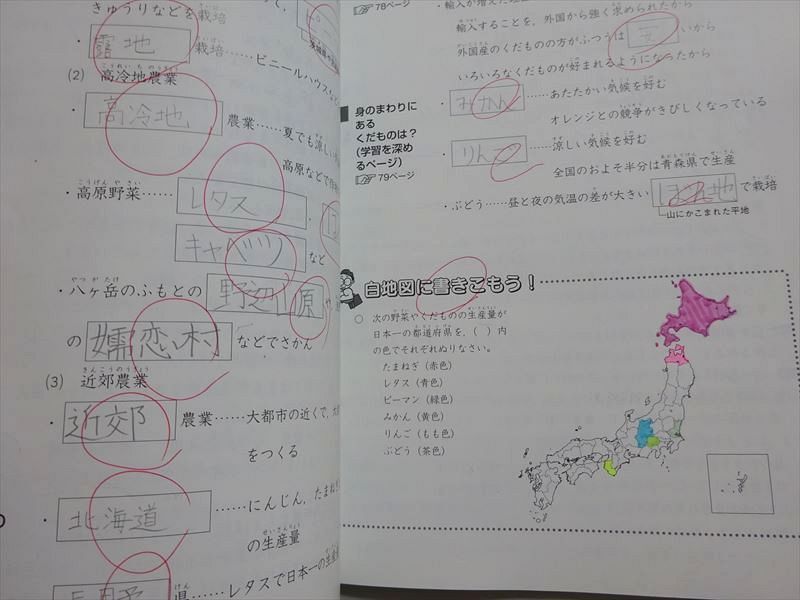 きゅうりなどを栽培
露地 栽培……ビニールハウス
(2) 高冷地農業
高冷地 農業……夏でも涼しい
高原などで
・高原野菜…… レタス
キャベツ など
・八ヶ岳のふもとの 野辺山原
の 嬬恋村 などでさかん
(3) 近郊農業
・近郊 農業……大都市の近くで、
をつくる
・北海道 ……にんじん、たまねぎ
の生産量
県……レタスで日本一の生産量
78ページ
輸入することを、外国から強く求められたから
外国産のくだものの方がふつうは 安 いから
いろいろなくだものが好まれるようになったから
身のまわりに
ある
くだものは?
(学習を深め
るページ)
79ページ
・みかん ……あたたかい気候を好む
オレンジとの競争がきびしくなっている
・りんご ……涼しい気候を好む
全国のおよそ半分は青森県で生産
・ぶどう……昼と夜の気温の差が大きい ぼん地 で栽培
山にかこまれた平地
白地図に書きこもう!
○ 次の野菜やくだものの生産量が
日本一の都道府県を、( )内
の色でそれぞれぬりなさい。
たまねぎ(赤色)
レタス(青色)
ピーマン(緑色)
みかん(黄色)
りんご(もも色)
ぶどう(茶色)